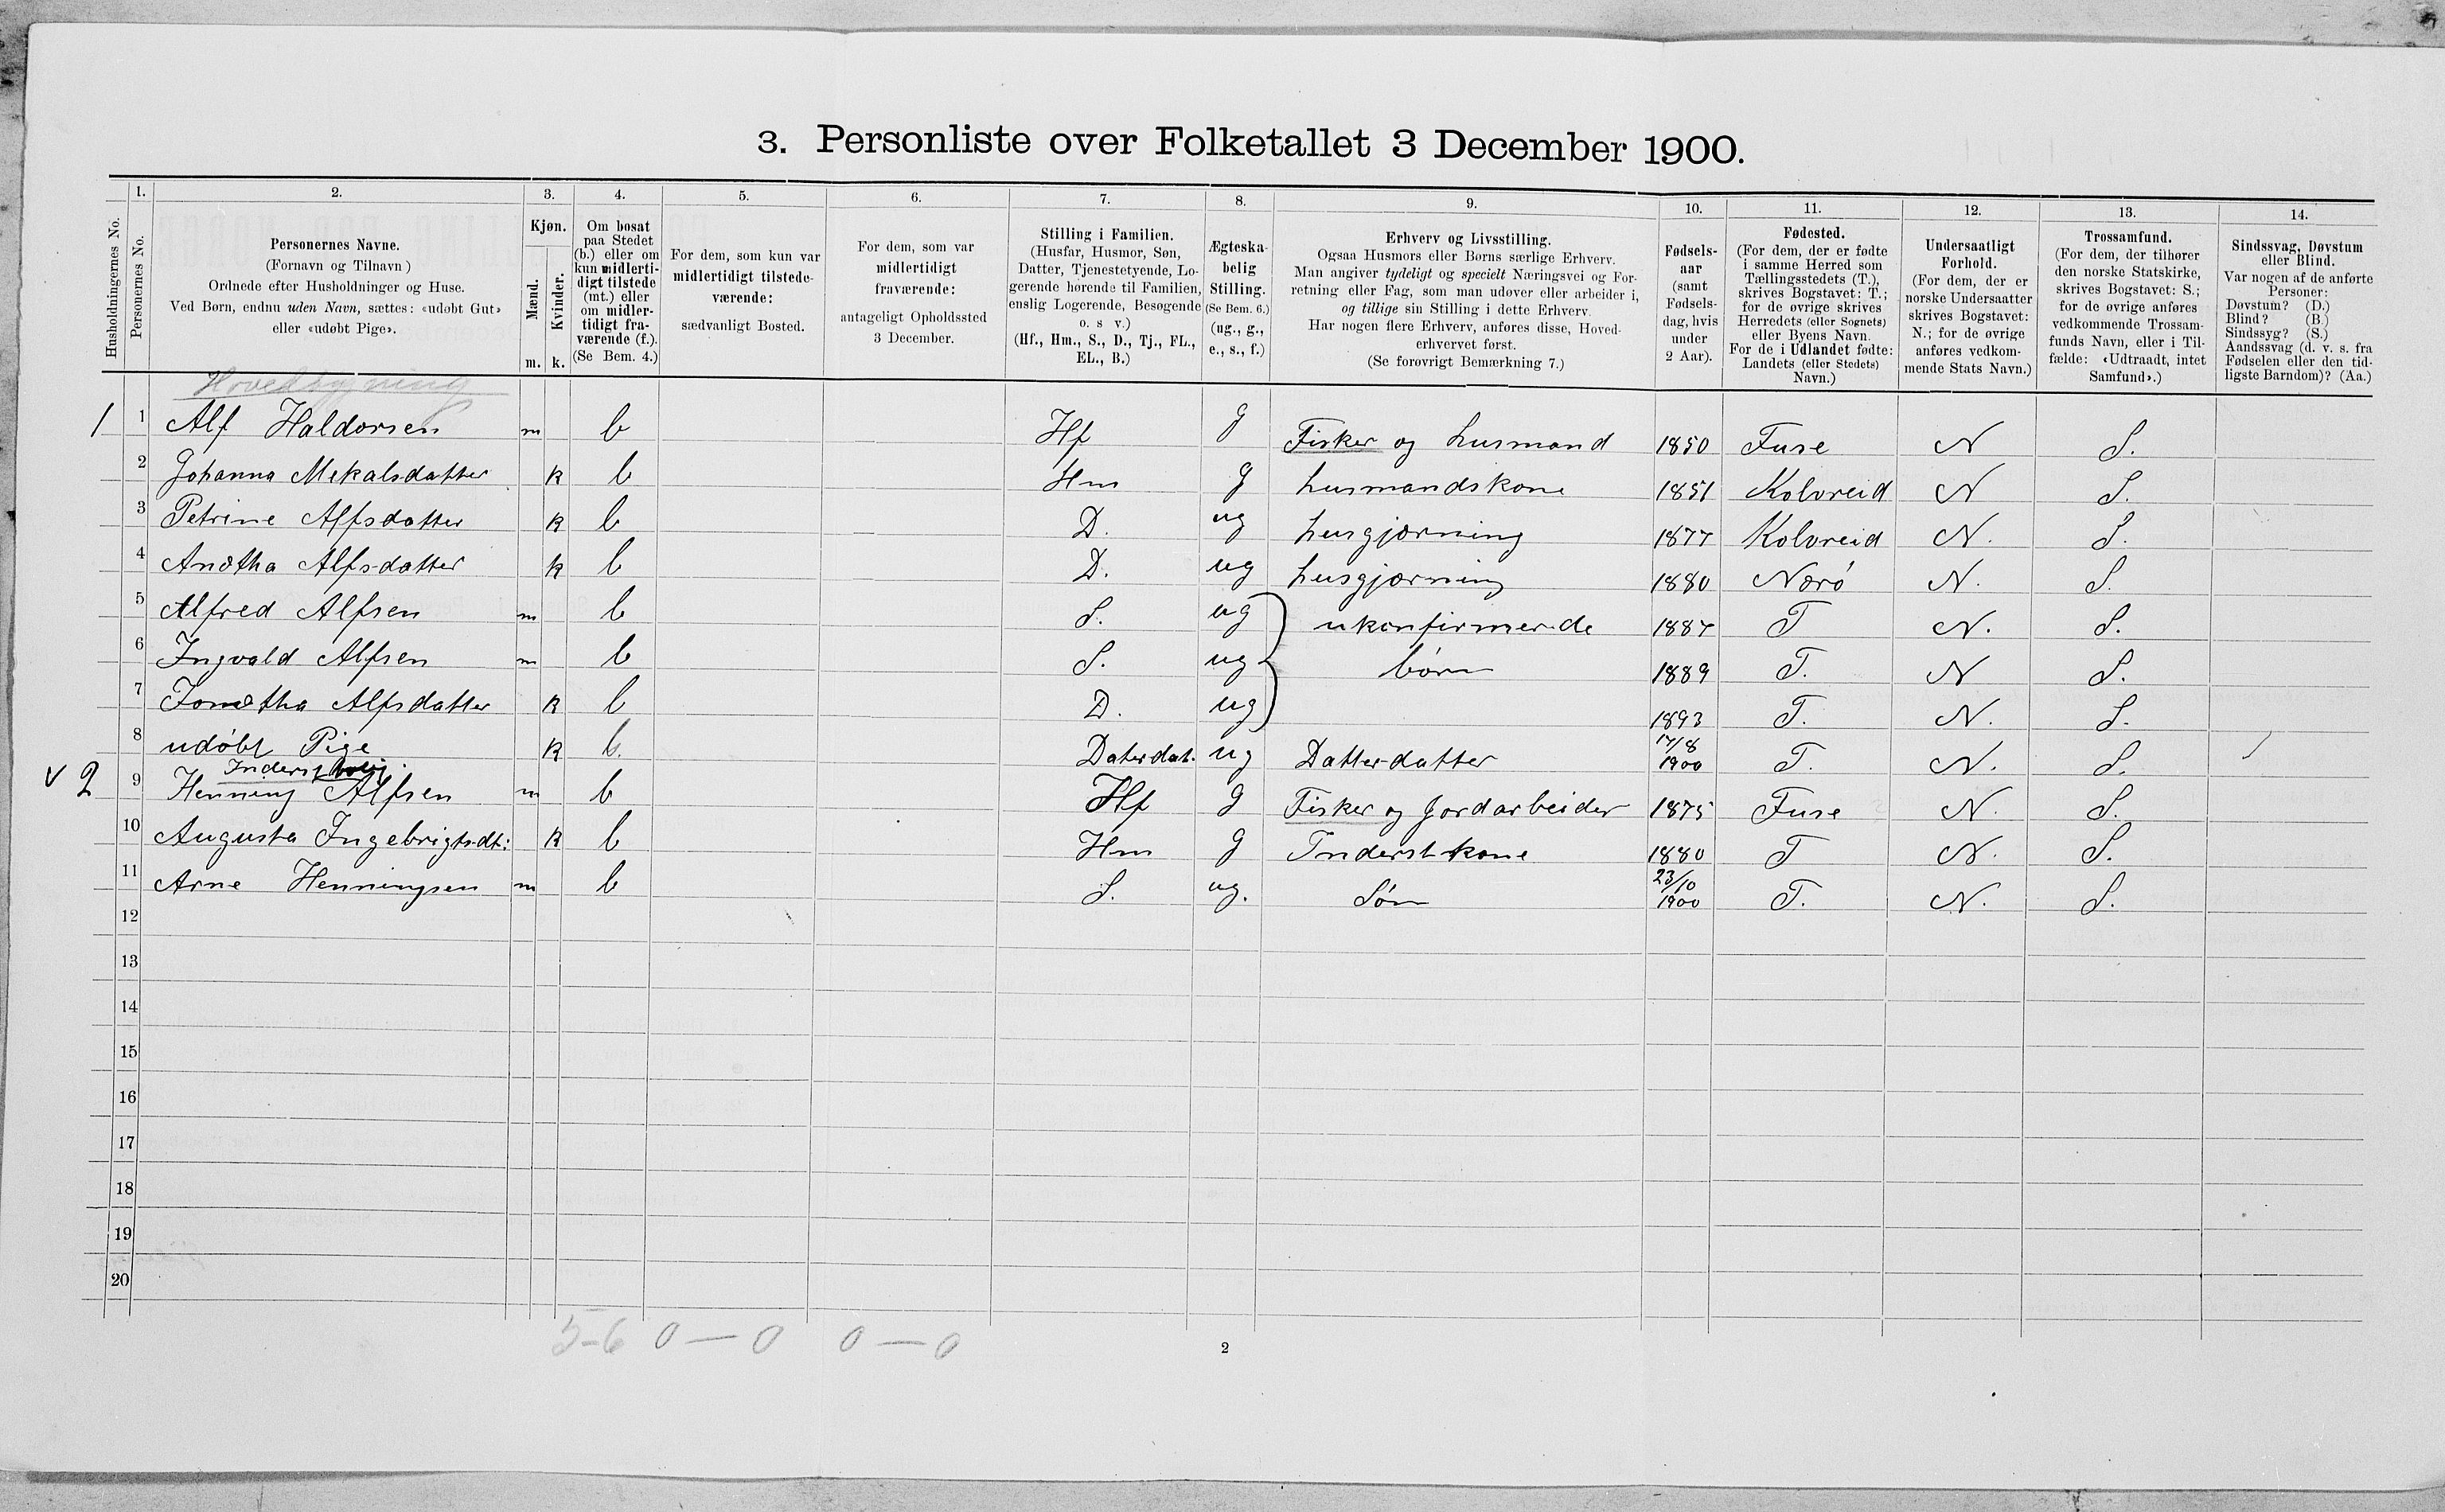 3. Personliste over Folketallet 3 December 1900.
Husholdningernes No.
1. Personernes No.
2. Personernes Navne.
(Fornavn og Tilnavn)
Ordnede efter Husholdninger og Huse.
Ved Børn, endnu uden Navn, sættes: «udøbt Gut»
eller «udøbt Pige».
3. Kjøn.
Mænd. m.
Kvinder. k.
4. Om bosat
paa Stedet
(b.) eller om
kun midlerti-
digt tilstede
(mt.) eller
om midler-
tidigt fra-
værende (f.).
(Se Bem. 4.)
5. For dem, som kun var
midlertidigt tilstede-
værende:
sædvanligt Bosted.
6. For dem, som var
midlertidigt
fraværende:
antageligt Opholdssted
3 December.
7. Stilling i Familien.
(Husfar, Husmor, Søn,
Datter, Tjenestetyende, Lo-
gerende hørende til Familien,
enslig Logerende, Besøgende
o. s v.)
(Hf., Hm., S., D., Tj., FL.,
EL., B.)
8. Ægteska-
belig
Stilling.
(Se Bem. 6.)
(ug., g.,
e., s., f.)
9. Erhverv og Livsstilling.
Ogsaa Husmors eller Børns særlige Erhverv.
Man angiver tydeligt og specielt Næringsvei og For-
retning eller Fag, som man udøver eller arbeider i,
og tillige sin Stilling i dette Erhverv.
Har nogen flere Erhverv, anføres disse, Hoved-
erhvervet først.
(Se forøvrigt Bemærkning 7.)
10. Fødsels-
aar
(samt
Fødsels-
dag, hvis
under
2 Aar).
11. Fødested.
(For dem, der er fødte
i samme Herred som
Tællingsstedets (T.),
skrives Bogstavet: T.;
for de øvrige skrives
Herredets (eller Sognets)
eller Byens Navn.
For de i Udlandet fødte:
Landets (eller Stedets)
Navn.)
12. Undersaatligt
Forhold.
(For dem, der er
norske Undersaatter
skrives Bogstavet:
N.; for de øvrige
anføres vedkom-
mende Stats Navn.)
13. Trossamfund.
(For dem, der tilhører
den norske Statskirke,
skrives Bogstavet: S.;
for de øvrige anføres
vedkommende Trossam-
funds Navn, eller i Til-
fælde: «Udtraadt, intet
Samfund».)
14. Sindssvag, Døvstum
eller Blind.
Var nogen af de anførte
Personer:
Døvstum? (D.)
Blind? (B.)
Sindssyg? (S.)
Aandssvag (d. v. s. fra
Fødselen eller den tid-
ligste Barndom)? (Aa.)
Hovedbygning
1 1 Alf Haldorsen m b Hf g Fisker og husmand 1850 Fuse N S.
2 Johanna Mekalsdatter k b Hm g husmandskone 1851 Kolvreid N S.
3 Petrine Alfsdatter k b D. ug husgjærning 1877 Kolvreid N. S.
4 Anætha Alfsdatter k b D. ug husgjærning 1880 Nærö N. S.
5 Alfred Alfsen m b S. ug ukonfirmerde 1887 T N. S.
6 Ingvald Alfsen m b S. ug börn 1889 T. N S.
7 Jonætha Alfsdatter k b D. ug 1893 T. N. S.
8 udöbt Pige k b. Daterdat. ug Datterdatter 17/8 1900 T. N. S.
Inderstbolig
v 2 9 Henning Alfsen m b Hf g Fisker og Jordarbeider 1875 Fuse N. S.
10 Augusta Ingebrigtsdt: k b Hm g Inderstkone 1880 T N. S.
11 Arne Henningsen m b S. ug. Sön 23/10 1900 T. N. S.
12
13
14
15
16
17
18
19
20
5-6 0 — 0 0 — 0
2